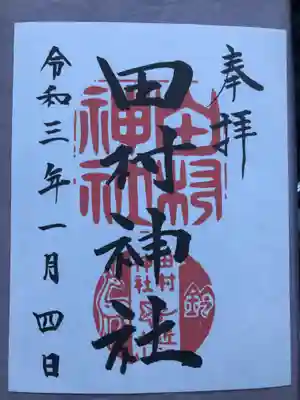 奉拝
田村神社
令和三年一月四日
田村神社